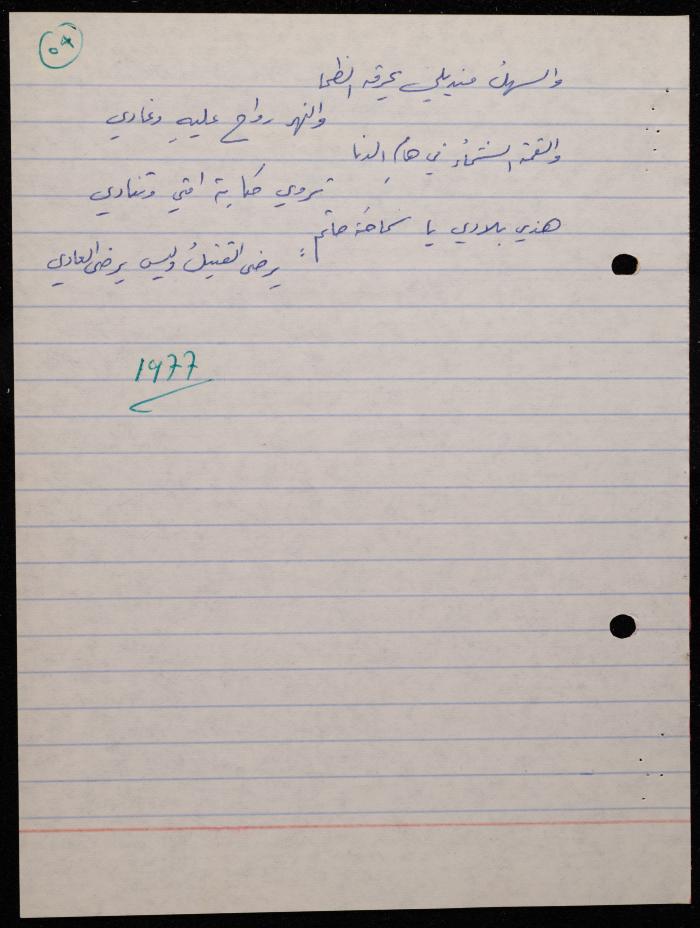 والسهلُ منديلي يحرقه الظما
والنهر رواح عليهِ وغادي
والقمة الشماءُ في هامِ الدنا
تروي حكاية امتي وتنادي
هذي بلادي يا سماحة حاتم
يرضى القتيلُ وليس يرضى العادي
1977